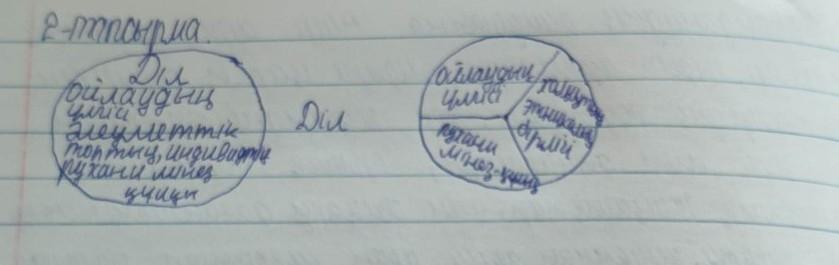 2-тапсырма.
Діл
ойлаудың
үлгісі
әлеуметтік
топтың, индивидтің
рухани мінез
құлқы
Діл
ойлаудың
үлгісі
халықтың
этникалық
бірлігі
рухани
мінез-құлқы